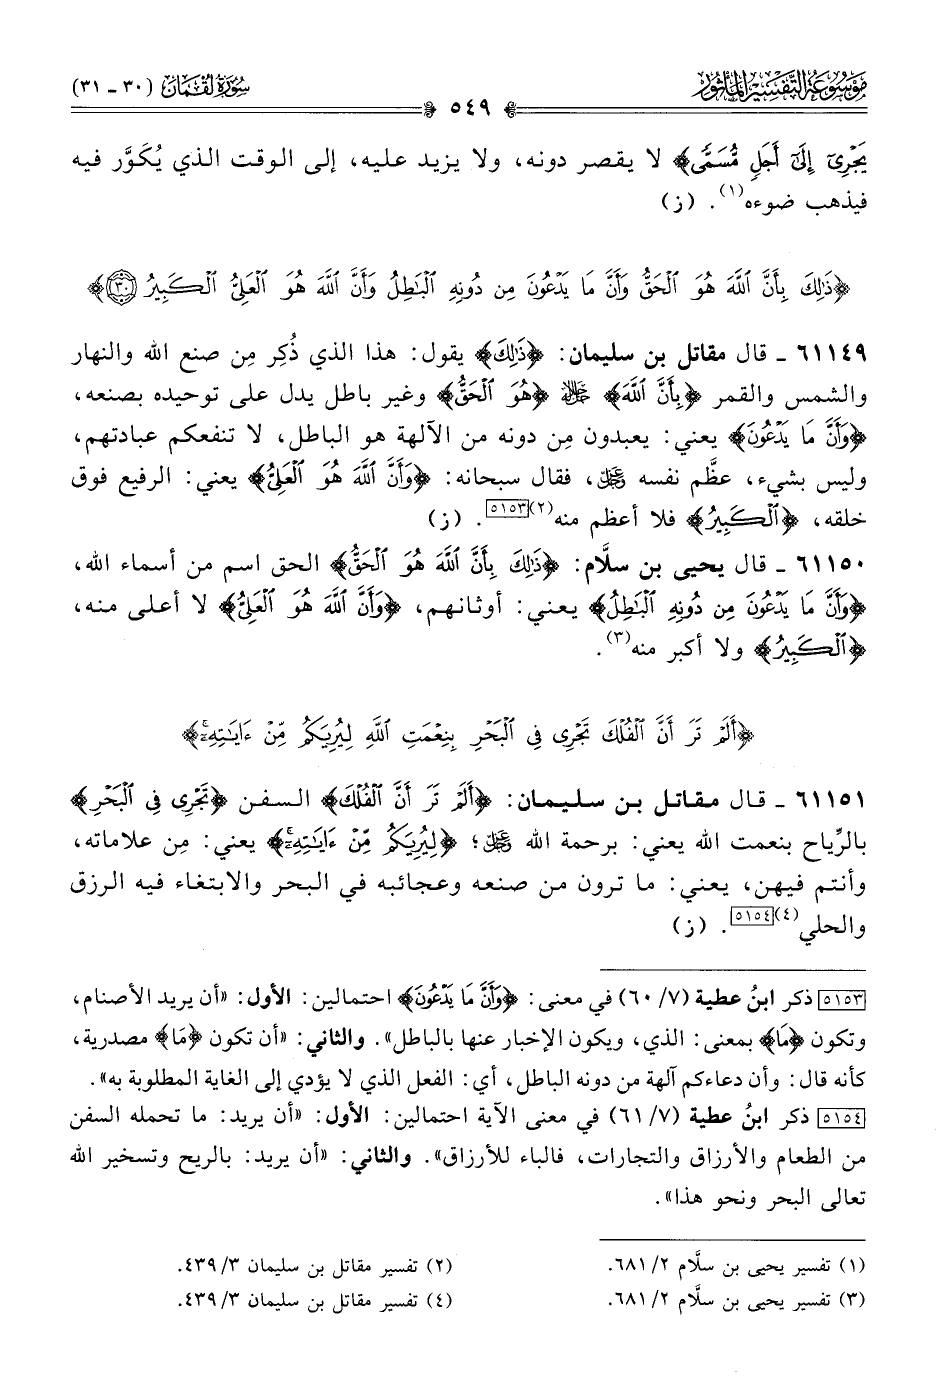 موسوعة التفسير المأثور
سورة لقمان (٣٠ - ٣١)
٥٤٩
يَجْرِىٓ إِلَىٰٓ أَجَلٍ مُّسَمًّى﴾ لا يقصر دونه، ولا يزيد عليه، إلى الوقت الذي يُكَوَّر فيه
فيذهب ضوءه(١). (ز)
﴿ذَٰلِكَ بِأَنَّ ٱللَّهَ هُوَ ٱلْحَقُّ وَأَنَّ مَا يَدْعُونَ مِن دُونِهِ ٱلْبَٰطِلُ وَأَنَّ ٱللَّهَ هُوَ ٱلْعَلِىُّ ٱلْكَبِيرُ ٣٠﴾
٦١١٤٩ - قال مقاتل بن سليمان: ﴿ذَٰلِكَ﴾ يقول: هذا الذي ذُكِر مِن صنع الله والنهار
والشمس والقمر ﴿بِأَنَّ ٱللَّهَ﴾ ﷻ ﴿هُوَ ٱلْحَقُّ﴾ وغير باطل يدل على توحيده بصنعه،
﴿وَأَنَّ مَا يَدْعُونَ﴾ يعني: يعبدون مِن دونه من الآلهة هو الباطل، لا تنفعكم عبادتهم،
وليس بشيء، عظَّم نفسه ﷿، فقال سبحانه: ﴿وَأَنَّ ٱللَّهَ هُوَ ٱلْعَلِىُّ﴾ يعني: الرفيع فوق
خلقه، ﴿ٱلْكَبِيرُ﴾ فلا أعظم منه(٢)[٥١٥٣]. (ز)
٦١١٥٠ - قال يحيى بن سلَّام: ﴿ذَٰلِكَ بِأَنَّ ٱللَّهَ هُوَ ٱلْحَقُّ﴾ الحق اسم من أسماء الله،
﴿وَأَنَّ مَا يَدْعُونَ مِن دُونِهِ ٱلْبَٰطِلُ﴾ يعني: أوثانهم، ﴿وَأَنَّ ٱللَّهَ هُوَ ٱلْعَلِىُّ﴾ لا أعلى منه،
﴿ٱلْكَبِيرُ﴾ ولا أكبر منه(٣).
﴿أَلَمْ تَرَ أَنَّ ٱلْفُلْكَ تَجْرِى فِى ٱلْبَحْرِ بِنِعْمَتِ ٱللَّهِ لِيُرِيَكُم مِّنْ ءَايَٰتِهِۦٓ﴾
٦١١٥١ - قال مقاتل بن سليمان: ﴿أَلَمْ تَرَ أَنَّ ٱلْفُلْكَ﴾ السفن ﴿تَجْرِى فِى ٱلْبَحْرِ﴾
بالرِّياح بنعمت الله يعني: برحمة الله ﷿؛ ﴿لِيُرِيَكُم مِّنْ ءَايَٰتِهِۦٓ﴾ يعني: مِن علاماته،
وأنتم فيهن، يعني: ما ترون من صنعه وعجائبه في البحر والابتغاء فيه الرزق
والحلي(٤)[٥١٥٤]. (ز)
[٥١٥٣] ذكر ابنُ عطية (٧/ ٦٠) في معنى: ﴿وَأَنَّ مَا يَدْعُونَ﴾ احتمالين: الأول: «أن يريد الأصنام،
وتكون ﴿مَا﴾ بمعنى: الذي، ويكون الإخبار عنها بالباطل». والثاني: «أن تكون ﴿مَا﴾ مصدرية،
كأنه قال: وأن دعاءكم آلهة من دونه الباطل، أي: الفعل الذي لا يؤدي إلى الغاية المطلوبة به».
[٥١٥٤] ذكر ابنُ عطية (٧/ ٦١) في معنى الآية احتمالين: الأول: «أن يريد: ما تحمله السفن
من الطعام والأرزاق والتجارات، فالباء للأرزاق». والثاني: «أن يريد: بالريح وتسخير الله
تعالى البحر ونحو هذا».
(١) تفسير يحيى بن سلَّام ٢/ ٦٨١.
(٢) تفسير مقاتل بن سليمان ٣/ ٤٣٩.
(٣) تفسير يحيى بن سلَّام ٢/ ٦٨١.
(٤) تفسير مقاتل بن سليمان ٣/ ٤٣٩.